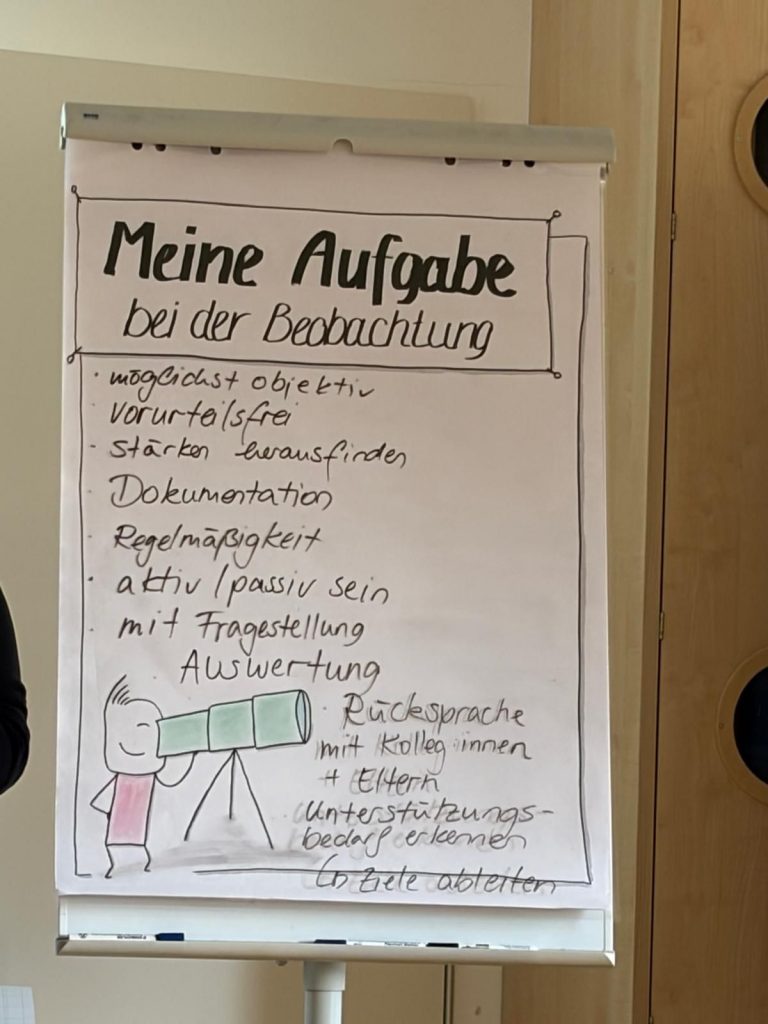 Meine Aufgabe
bei der Beobachtung
· möglichst objektiv
vorurteilsfrei
· stärken herausfinden
· Dokumentation
· Regelmäßigkeit
· aktiv / passiv sein
· mit Fragestellung
Auswertung
· Rücksprache
mit Kolleg:innen
+ Eltern
· Unterstützungs-
bedarf erkennen
↳ Ziele ableiten